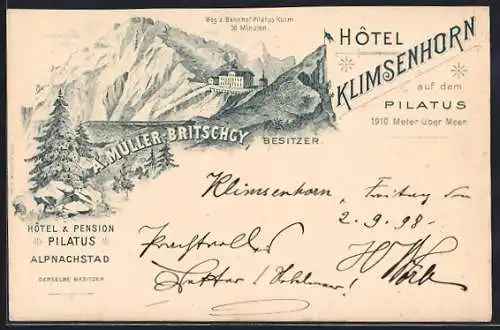 Weg z. Bahnhof Pilatus-Kulm
30 Minuten.
HÔTEL
KLIMSENHORN
auf dem
PILATUS
1910 Meter über Meer.
A. MÜLLER-BRITSCHGY
BESITZER.
HÔTEL & PENSION
PILATUS
ALPNACHSTAD
DERSELBE BESITZER
Klimsenhorn, Freitag den
2.9.98.
Prachtvolles
Wetter!